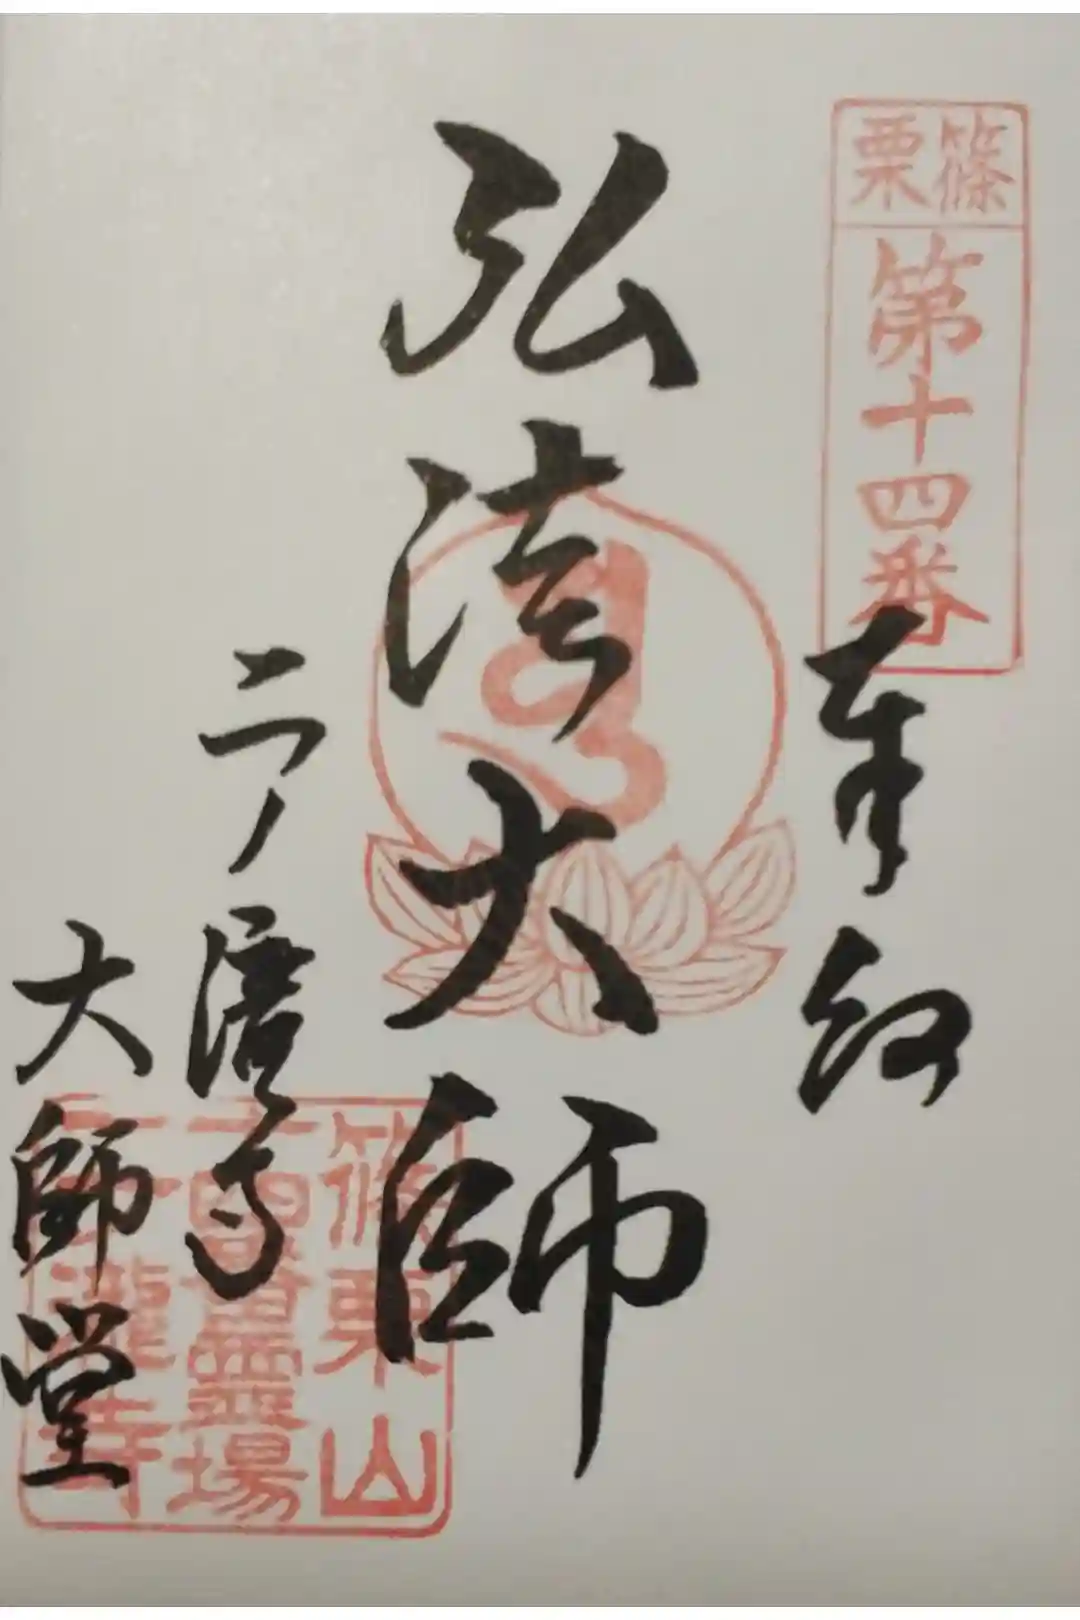 篠栗
第十四番
奉納
弘法大師
二ノ滝寺
大師堂
篠栗山
霊場
二ノ瀧寺